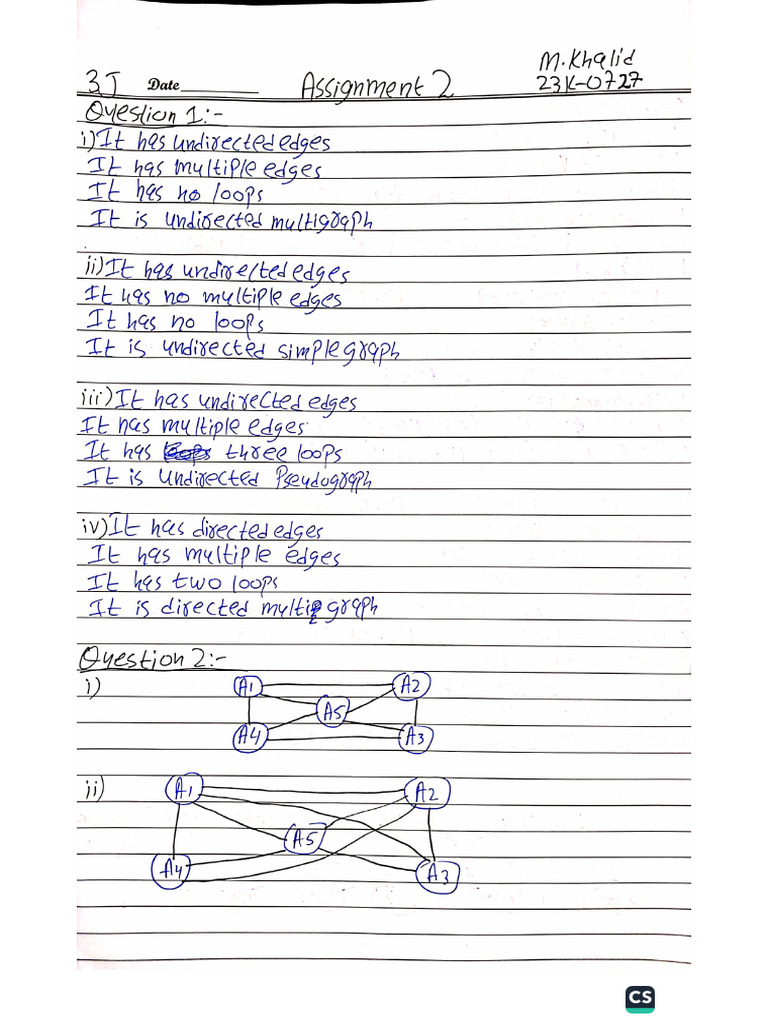 M.Khalid
3J Date Assignment 2 23K-0727
Question 1:-
i) It has undirected edges
It has multiple edges
It has no loops
It is undirected multigraph
ii) It has undirected edges
It has no multiple edges
It has no loops
It is undirected simple graph
iii) It has undirected edges
It has multiple edges
It has three loops
It is undirected Pseudograph
iv) It has directed edges
It has multiple edges
It has two loops
It is directed multigraph
Question 2:-
i) A1 A2
A5
A4 A3
ii) A1 A2
A5
A4 A3
CS